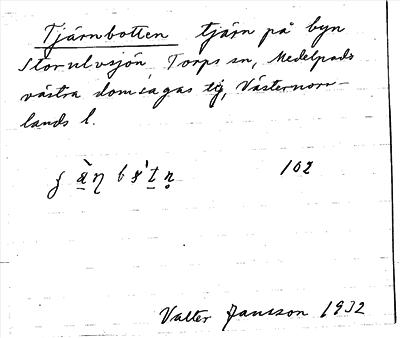 Tjärnbotten tjärn på byn
Storulvsjön, Torps sn, Medelpads
västra domsagas tg, Västernorr-
lands l.
102
Valter Jansson 1932